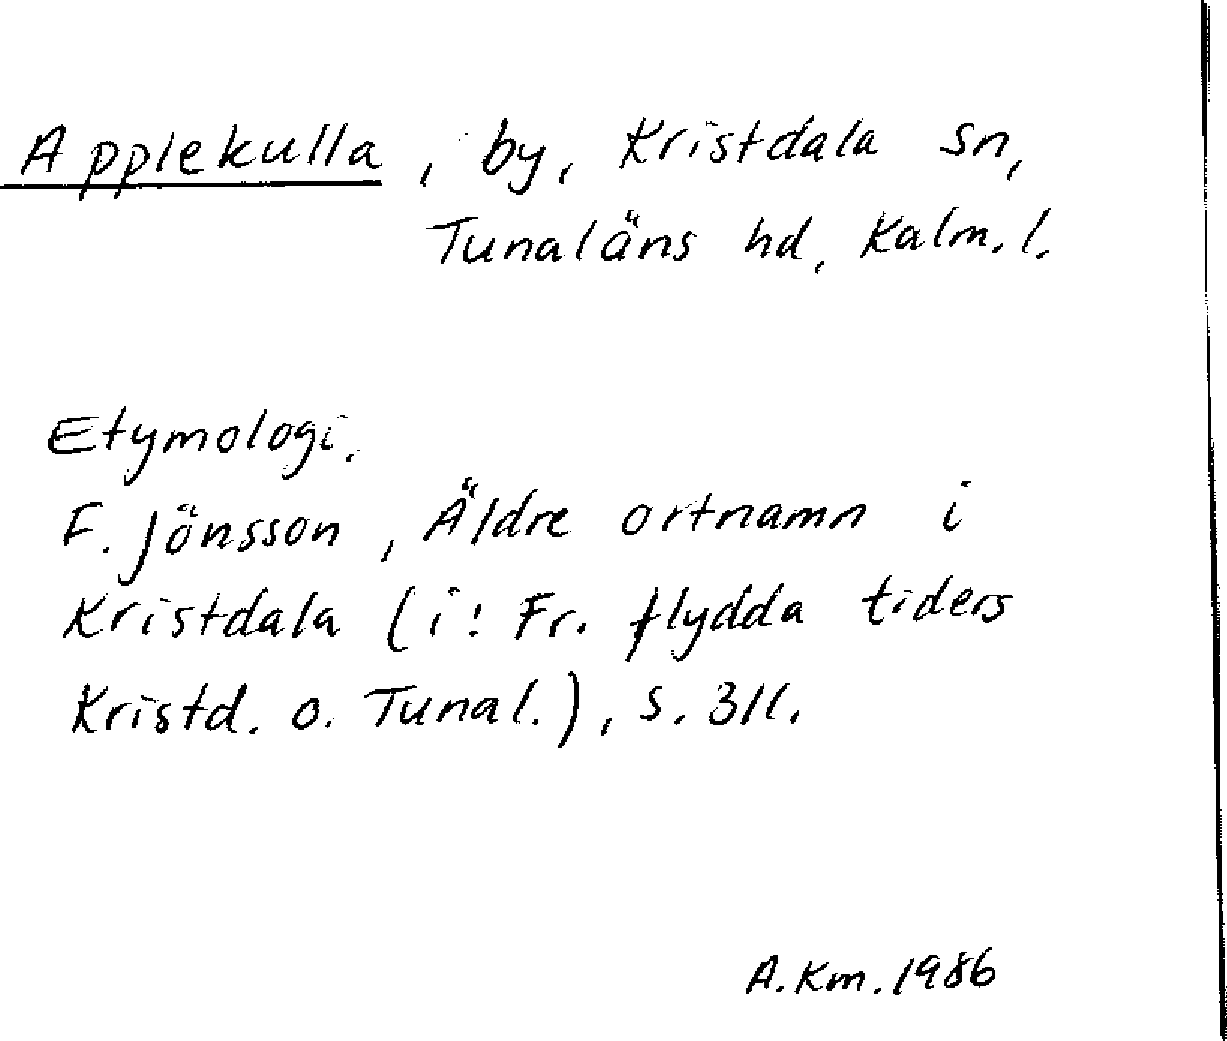 Applekulla, by, Kristdala sn,
Tunaläns hd, Kalm. l.
Etymologi.
F. Jönsson, Äldre ortnamn i
Kristdala (i: Fr. flydda tiders
Kristd. o. Tunal.), s. 311.
A. Km. 1986